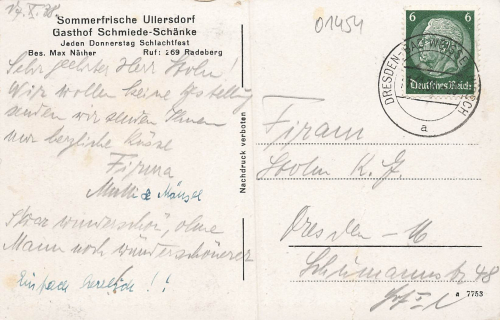 14.X.38.
Sommerfrische Ullersdorf
Gasthof Schmiede-Schänke
Jeden Donnerstag Schlachtfest
Bes. Max Näther Ruf: 269 Radeberg
01454
Sehr geehrter Herr
Wir wollen keine
senden wir senden Ihnen
nur herzliche Grüsse
Firma
&
wunderschön, ohne
Mann noch wunderschöner
Einfach herrlich!!
Nachdruck verboten
6 6
Deutsches Reich
DRESDEN-BAD
a
Firma
K. G.
Dresden-A
Schumannstr. 48
a 7753